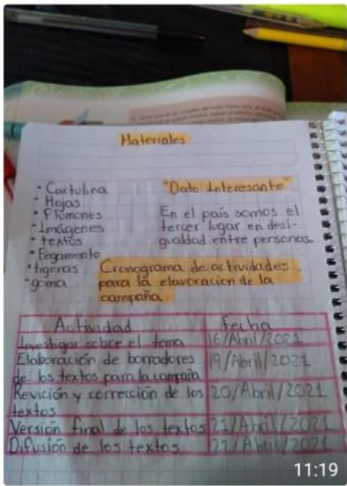 Materiales
• Cartulina
• Hojas
• Plumones
• Imágenes
• textos
• Pegamento
• tigeras
• goma
"Dato Interesante"
En el país somos el
tercer lugar en desi-
gualdad entre personas.
Cronograma de actividades
para la elavoración de la
campaña
Actividad Fecha
Investigar sobre el tema 16/Abril/2021
Elaboración de borradores 19/Abril/2021
de los textos para la campaña
Revición y corrección de los 20/Abril/2021
textos
Versión final de los textos 21/Abril/2021
Difusión de los textos 22/Abril/2021
11:19